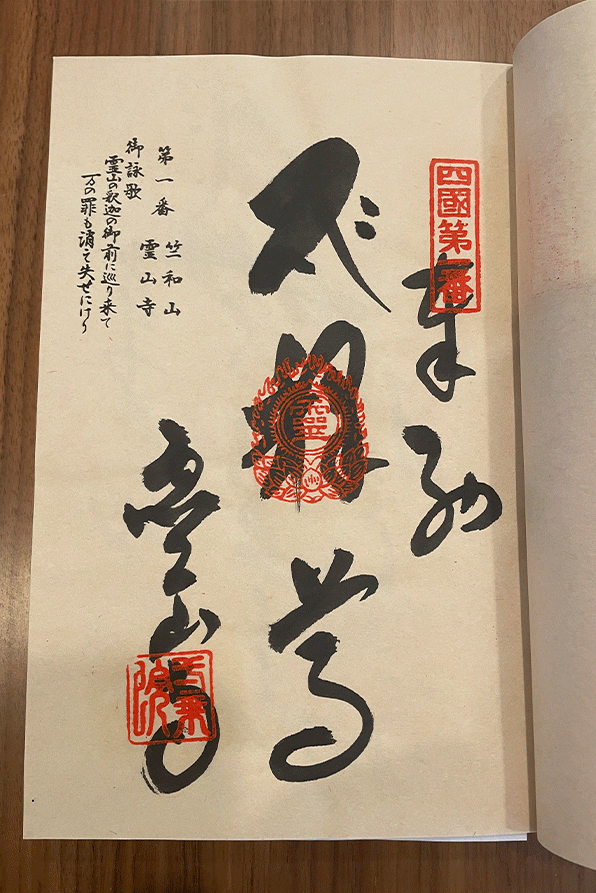 四國第一番
奉納
尊
霊山寺
第一番
竺和山
霊山寺
御詠歌
霊山の釈迦の御前に巡り来て
万の罪も消えて失せにけり